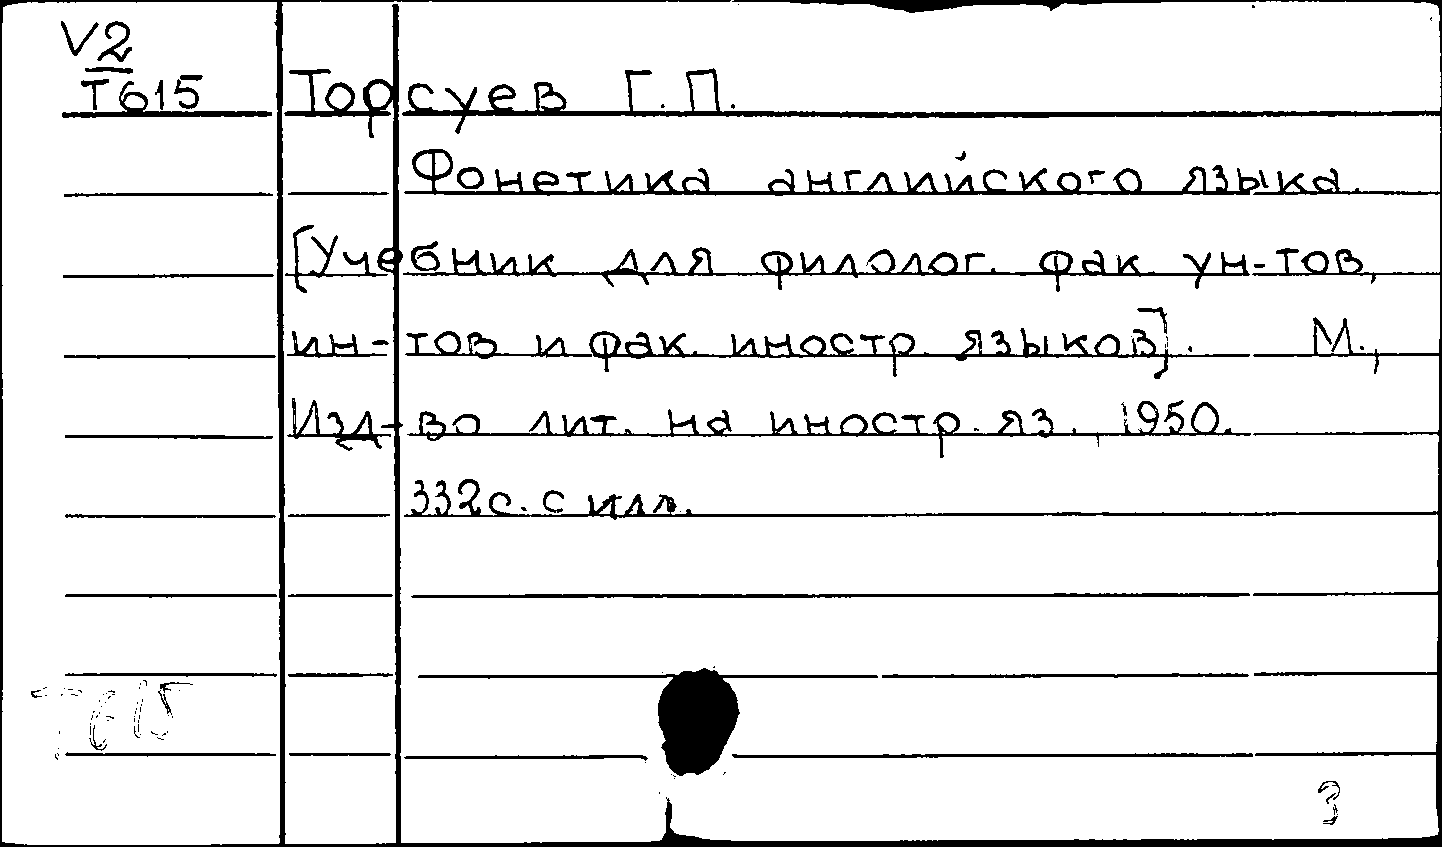 V2
Т615 Торсуев Г.П.
Фонетика английского языка.
[Учебник для филолог. фак ун-тов,
ин-тов и фак. иностр. языков]. М.,
Изд-во лит. на иностр. яз., 1950.
332с. с илл.
Т615
3